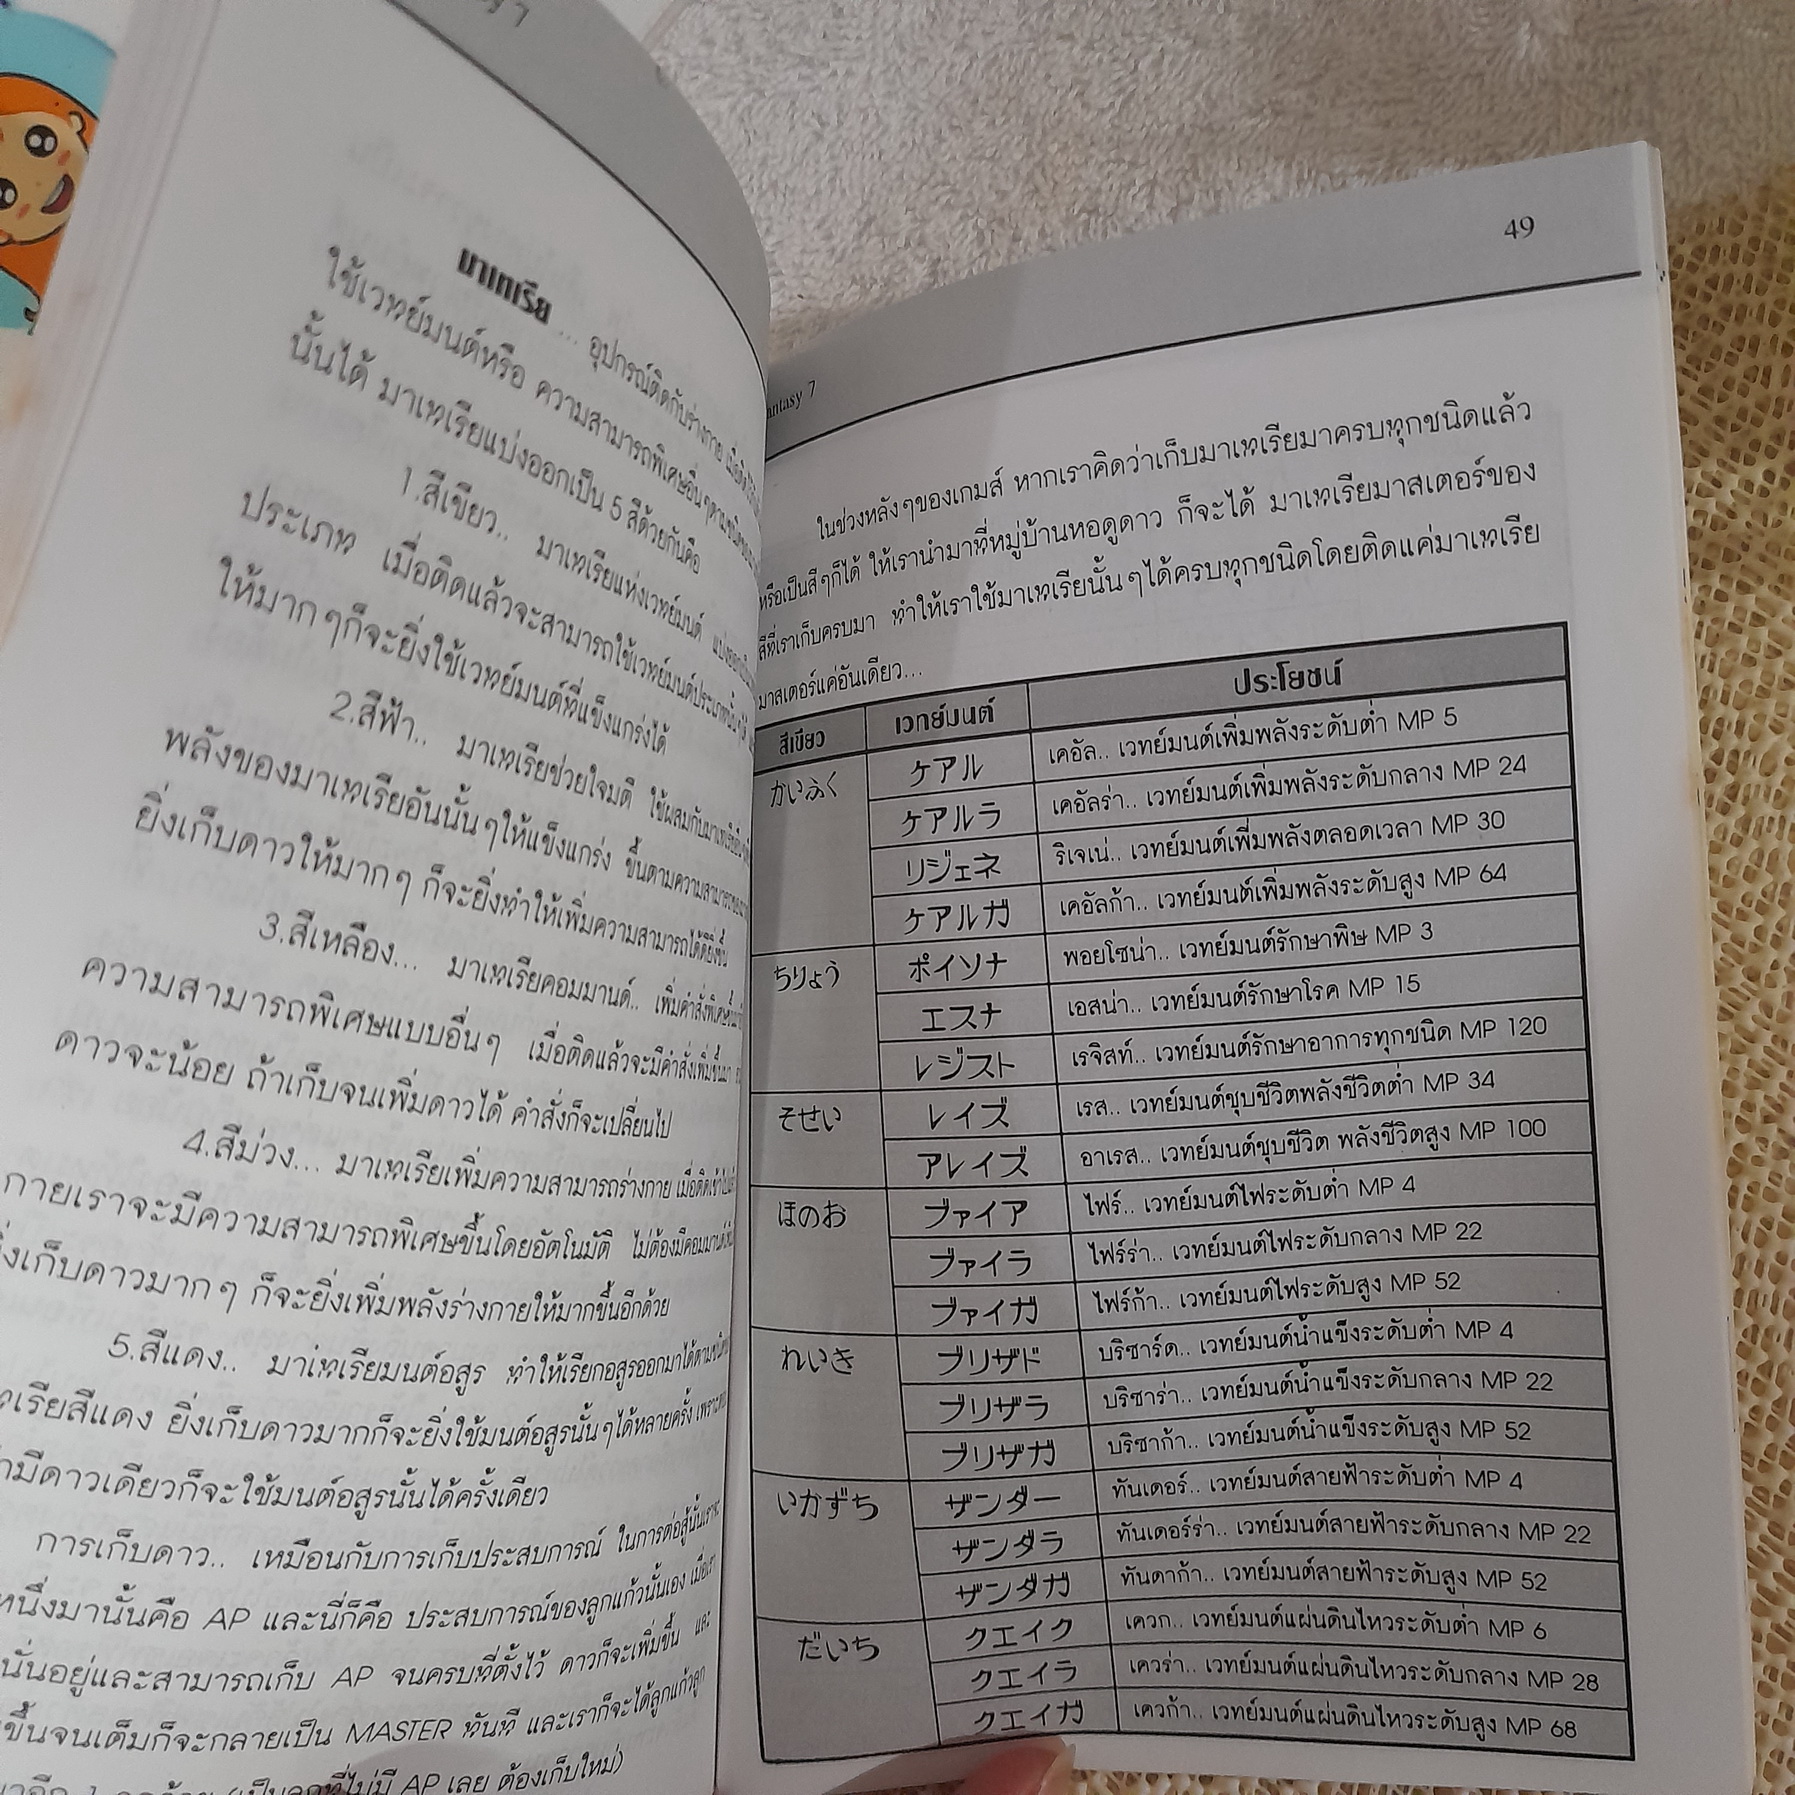 มาเทเรีย ... อุปกรณ์ติดกับร่างกาย
ใช้เวทย์มนต์หรือ ความสามารถพิเศษอื่นๆตามชนิดของ
นั้นได้ มาเทเรียแบ่งออกเป็น 5 สีด้วยกันคือ
1.สีเขียว.. มาเทเรียแห่งเวทย์มนต์
ประเภท เมื่อติดแล้วจะสามารถใช้เวทย์มนต์ประเภทนั้นๆได้
ให้มากๆก็จะยิ่งใช้เวทย์มนต์ที่แข็งแกร่งได้
2.สีฟ้า.. มาเทเรียช่วยโจมตี ใช้ผสมกับมาเทเรียอื่น
พลังของมาเทเรียอันนั้นๆให้แข็งแกร่ง ขึ้นตามความสามารถของ
ยิ่งเก็บดาวให้มากๆ ก็จะยิ่งทำให้เพิ่มความสามารถได้ดียิ่งขึ้น
3.สีเหลือง... มาเทเรียคอมมานด์.. เพิ่มคำสั่งพิเศษขึ้นมา
ความสามารถพิเศษแบบอื่นๆ เมื่อติดแล้วจะมีคำสั่งเพิ่มขึ้นมา
ดาวจะน้อย ถ้าเก็บจนเพิ่มดาวได้ คำสั่งก็จะเปลี่ยนไป
4.สีม่วง... มาเทเรียเพิ่มความสามารถร่างกาย เมื่อติดเข้าไปแล้ว
กายเราจะมีความสามารถพิเศษขึ้นโดยอัตโนมัติ ไม่ต้องมีคอมมานด์
ิ่งเก็บดาวมากๆ ก็จะยิ่งเพิ่มพลังร่างกายให้มากขึ้นอีกด้วย
5.สีแดง.. มาเทเรียมนต์อสูร ทำให้เรียกอสูรออกมาได้ตามชนิด
ทเรียสีแดง ยิ่งเก็บดาวมากก็จะยิ่งใช้มนต์อสูรนั้นๆได้หลายครั้ง
ามีดาวเดียวก็จะใช้มนต์อสูรนั้นได้ครั้งเดียว
การเก็บดาว.. เหมือนกับการเก็บประสบการณ์ ในการต่อสู้นั้นเราจะ
หนึ่งมานั้นคือ AP และนี่ก็คือ ประสบการณ์ของลูกแก้วนั้นเอง เมื่อเรา
นั่นอยู่และสามารถเก็บ AP จนครบที่ตั้งไว้ ดาวก็จะเพิ่มขึ้น และ
ขึ้นจนเต็มก็จะกลายเป็น MASTER ทันที และเราก็จะได้ลูกแก้วลูก
(เป็นลูกที่ไม่มี AP เลย ต้องเก็บใหม่)
49
antasy 7
ในช่วงหลังๆของเกมส์ หากเราคิดว่าเก็บมาเทเรียมาครบทุกชนิดแล้ว
หรือเป็นสีๆก็ได้ ให้เรานำมาที่หมู่บ้านหอดูดาว ก็จะได้ มาเทเรียมาสเตอร์ของ
สีที่เราเก็บครบมา ทำให้เราใช้มาเทเรียนั้นๆได้ครบทุกชนิดโดยติดแค่มาเทเรีย
มาสเตอร์แค่อันเดียว...
สีเขียว เวทย์มนต์ ประโยชน์
かいふく ケアル เคอัล.. เวทย์มนต์เพิ่มพลังระดับต่ำ MP 5
ケアルラ เคอัลร่า.. เวทย์มนต์เพิ่มพลังระดับกลาง MP 24
リジェネ ริเจเน่.. เวทย์มนต์เพิ่มพลังตลอดเวลา MP 30
ケアルガ เคอัลก้า.. เวทย์มนต์เพิ่มพลังระดับสูง MP 64
ちりょう ポイソナ พอยโซน่า.. เวทย์มนต์รักษาพิษ MP 3
エスナ เอสน่า.. เวทย์มนต์รักษาโรค MP 15
レジスト เรจิสท์.. เวทย์มนต์รักษาอาการทุกชนิด MP 120
そせい レイズ เรส.. เวทย์มนต์ชุบชีวิตพลังชีวิตต่ำ MP 34
アレイズ อาเรส.. เวทย์มนต์ชุบชีวิต พลังชีวิตสูง MP 100
ほのお ブァイア ไฟร์.. เวทย์มนต์ไฟระดับต่ำ MP 4
ブァイラ ไฟร์ร่า.. เวทย์มนต์ไฟระดับกลาง MP 22
ブァイガ ไฟร์ก้า.. เวทย์มนต์ไฟระดับสูง MP 52
れいき ブリザド บริซาร์ด.. เวทย์มนต์น้ำแข็งระดับต่ำ MP 4
ブリザラ บริซาร่า.. เวทย์มนต์น้ำแข็งระดับกลาง MP 22
ブリザガ บริซาก้า.. เวทย์มนต์น้ำแข็งระดับสูง MP 52
いかずち ザンダー ทันเดอร์.. เวทย์มนต์สายฟ้าระดับต่ำ MP 4
ザンダラ ทันเดอร์ร่า.. เวทย์มนต์สายฟ้าระดับกลาง MP 22
ザンダガ ทันดาก้า.. เวทย์มนต์สายฟ้าระดับสูง MP 52
だいち クエイク เควก.. เวทย์มนต์แผ่นดินไหวระดับต่ำ MP 6
クエイラ เควร่า.. เวทย์มนต์แผ่นดินไหวระดับกลาง MP 28
クエイガ เควก้า.. เวทย์มนต์แผ่นดินไหวระดับสูง MP 68